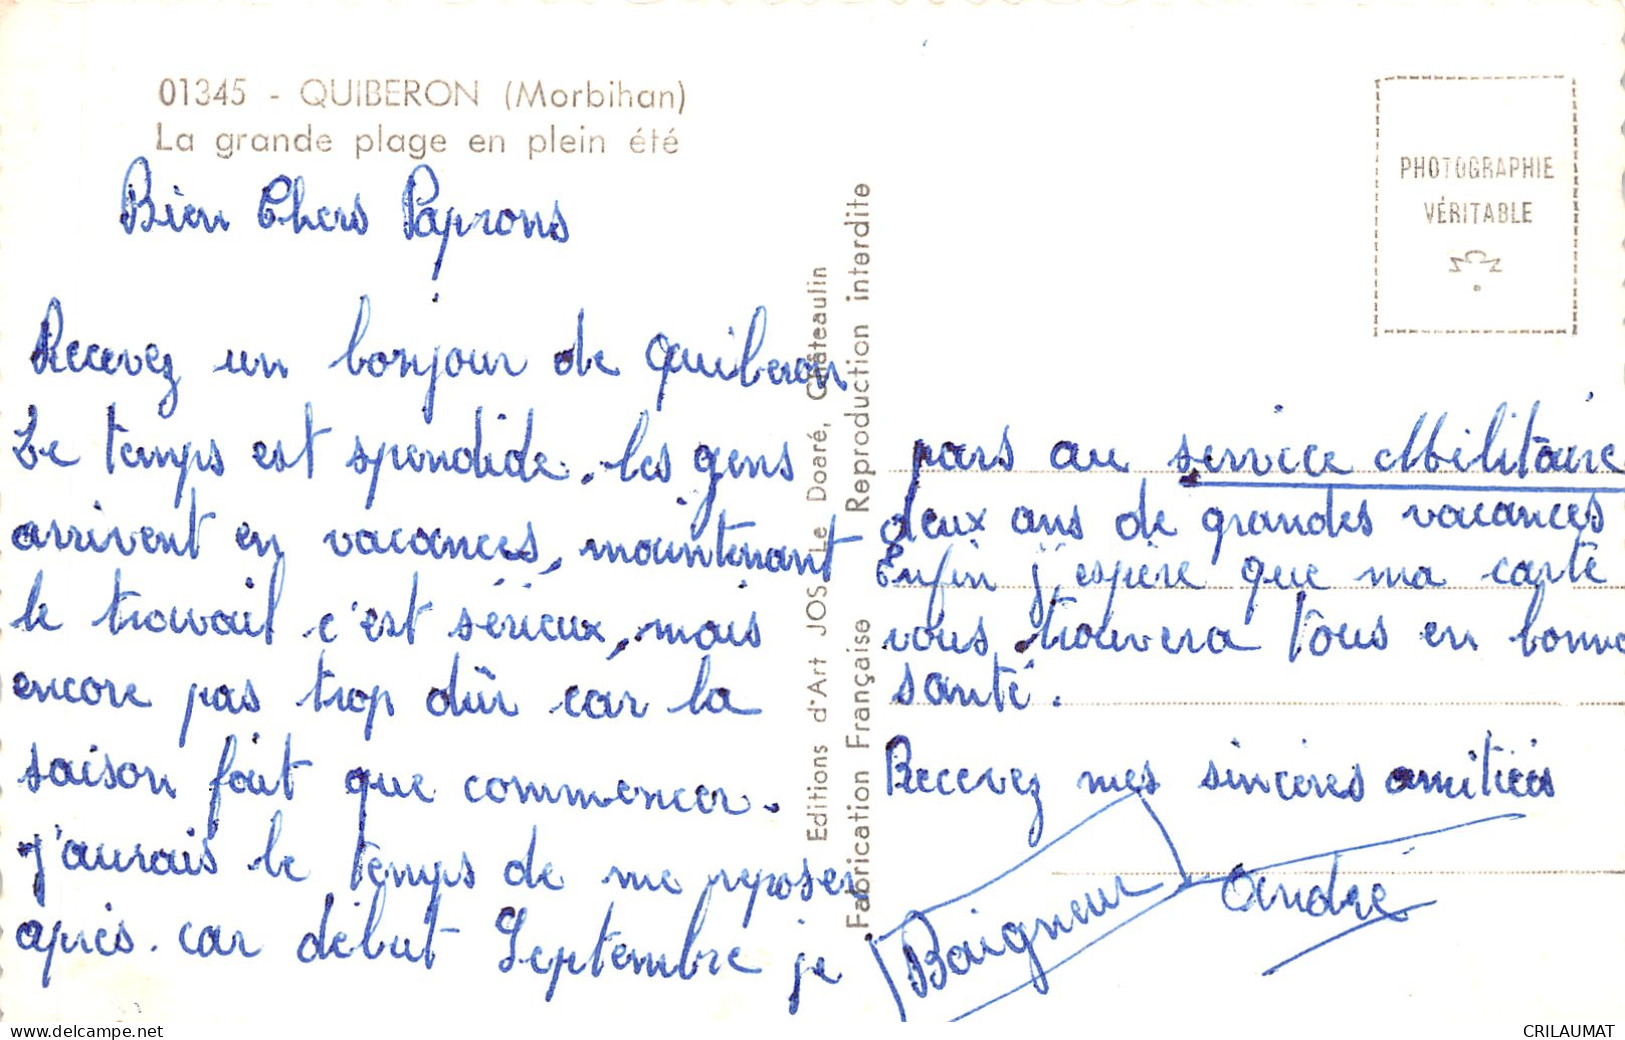 01345 - QUIBERON (Morbihan)
La grande plage en plein été
Bien Chers Paprons
Recevez un bonjour de Quiberon
Le temps est spendide. les gens
arrivent en vacances, maintenant
le travail c'est sérieux, mais
encore pas trop dûr car la
saison fait que commencer.
j'aurais le temps de me reposer
après. car début Septembre je
Editions d'Art JOS Le Doaré, Châteaulin
Fabrication Française Reproduction interdite
PHOTOGRAPHIE
VÉRITABLE
pars au service Militaire
deux ans de grandes vacances
Enfin j'espère que ma carte
vous trouvera tous en bonne
santé.
Recevez mes sincères amitiés
André
Baigneur
www.delcampe.net
CRILAUMAT